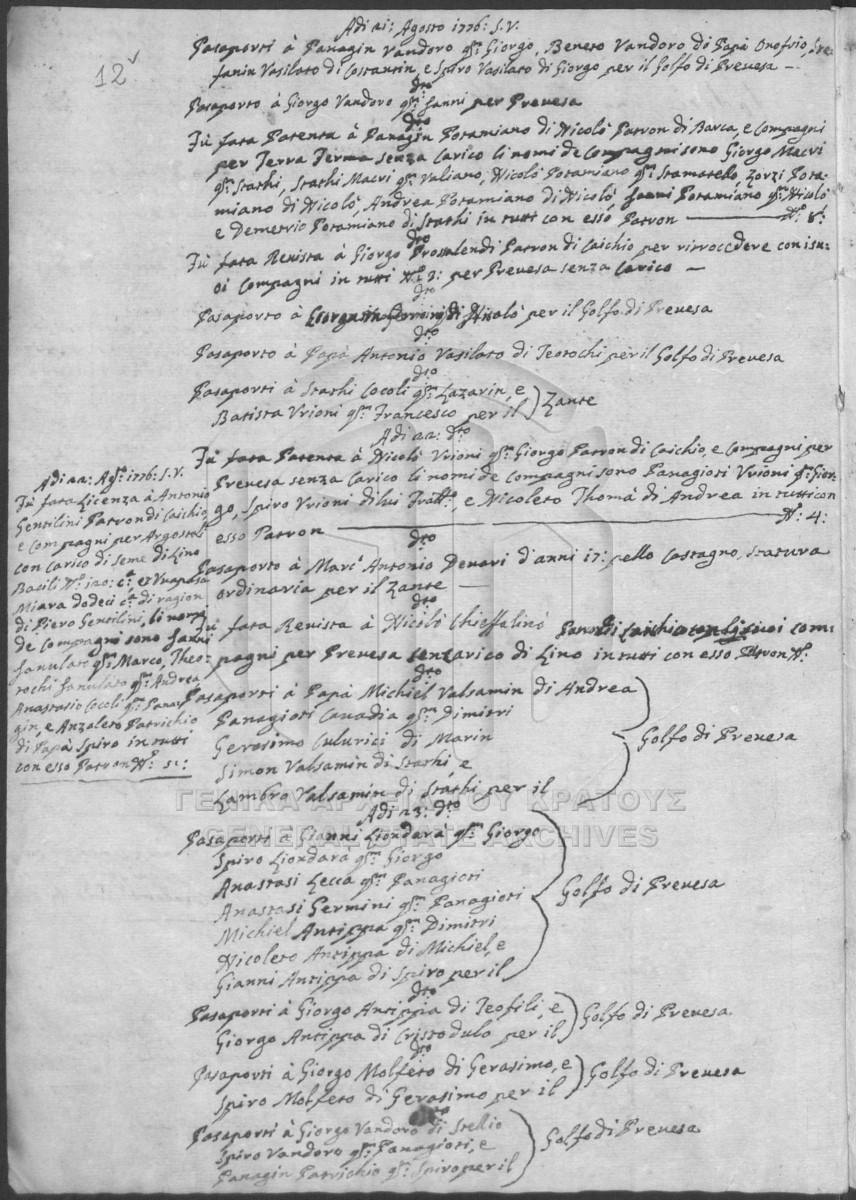 12v
Adi 21: Agosto 1776: S.V.
Pasaporti à Panagin Vandoro qm: Giorgo, Beneto Vandoro di Papà Onofrio, Ste-
fanin Vasilato di Costantin, e Spiro Vasilato di Giorgo per il Golfo di Prevesa —
dto
Pasaporto à Giorgo Vandoro qm: Janni per Prevesa
dto
Fù fata Patenta à Panagin Potamiano di Nicolò Patron di Barca, e Compagni
per Terra Ferma senza Carico li nomi de Compagni sono Giorgo Macri
qm: Stathi, Stathi Macri qm: Valiano, Nicolò Potamiano qm: Stamatello, Zorzi Pota-
miano di Nicolò, Andrea Potamiano di Nicolò, Janni Potamiano qm: Nicolò
e Demetrio Potamiano di Stathi in tutti con esso Patron — N°: 8:
dto
Fù fata Revista à Giorgo Prossalendi Patron di Caichio per rittoccedere con i su-
oi Compagni in tutti N°: 3: per Prevesa senza Carico —
dto
Pasaporto à di Nicolò per il Golfo di Prevesa
dto
Pasaporto à Papà Antonio Vasilato di Teotochi per il Golfo di Prevesa
dto
Pasaporti à Stathi Cocoli qm: Lazarin, e
Batista Vrioni qm: Francesco per il Zante
Adi 22: dto
Fù fata Patenta à Nicolò Vrioni qm: Giorgo Patron di Caichio, e Compagni per
Prevesa senza Carico li nomi de Compagni sono Panagioti Vrioni qm: Gior-
go, Spiro Vrioni di lui Fratt°:, e Nicoleto Thomà di Andrea in tutti con
esso Patron — N°: 4:
dto
Pasaporto à Marc' Antonio Devari d'anni 17: pello Castagno, statura
ordinaria per il Zante —
dto
Fù fata Revista à Nicolò Chieffalinò Patron di Caichio con li suoi com-
pagni per Prevesa senz carico di Lino in tutti con esso Patron N°:
dto
Pasaporti à Papà Michiel Valsamin di Andrea
Panagioti Cavadia qm: Dimitri
Gerasimo Culurici di Marin
Simon Valsamin di Stathi, e
Lambro Valsamin di Stathi per il
Golfo di Prevesa
Adi 23: dto
Pasaporto à Gianni Liondarà qm: Giorgo
Spiro Liondara qm: Giorgo
Anastasi Lecca qm: Panagioti
Anastasi Germini qm: Panagioti
Michiel Antippa qm: Dimitri
Nicoleto Antippa di Michiel, e
Gianni Antippa di Spiro per il
Golfo di Prevesa
dto
Pasaporti à Giorgo Antippa di Teofili, e
Giorgo Antippa di Cristodulo per il
Golfo di Prevesa
dto
Pasaporti à Giorgo Molfeto di Gerasimo, e
Spiro Molfeto di Gerasimo per il
Golfo di Prevesa
dto
Pasaporti à Giorgo Vandoro di Stelio
Spiro Vandoro qm: Panagioti, e
Panagin Patrichio qm: Spiro per il
Golfo di Prevesa
Adi 22: Agto: 1776: S.V.
Fù fata Licenza à Antonio
Gentilini Patron di Caichio,
e Compagni per Argostoli
con carico di Seme di Lino
Bacili N°: 120: ca: et Uvapasa
Miara dodeci ca: di ragion
di Piero Gentilini, li nomi
de Compagni sono Janni
Fanulato qm: Marco, Theo-
tochi Fanulato qm: Andrea
Anastasio Cocoli qm: Pana-
gin, e Anzoleto Patrichio
di Papà Spiro in tutti
con esso Patron N°: 5:
ΓΕΝΙΚΑ ΑΡΧΕΙΑ ΤΟΥ ΚΡΑΤΟΥΣ
GENERAL STATE ARCHIVES